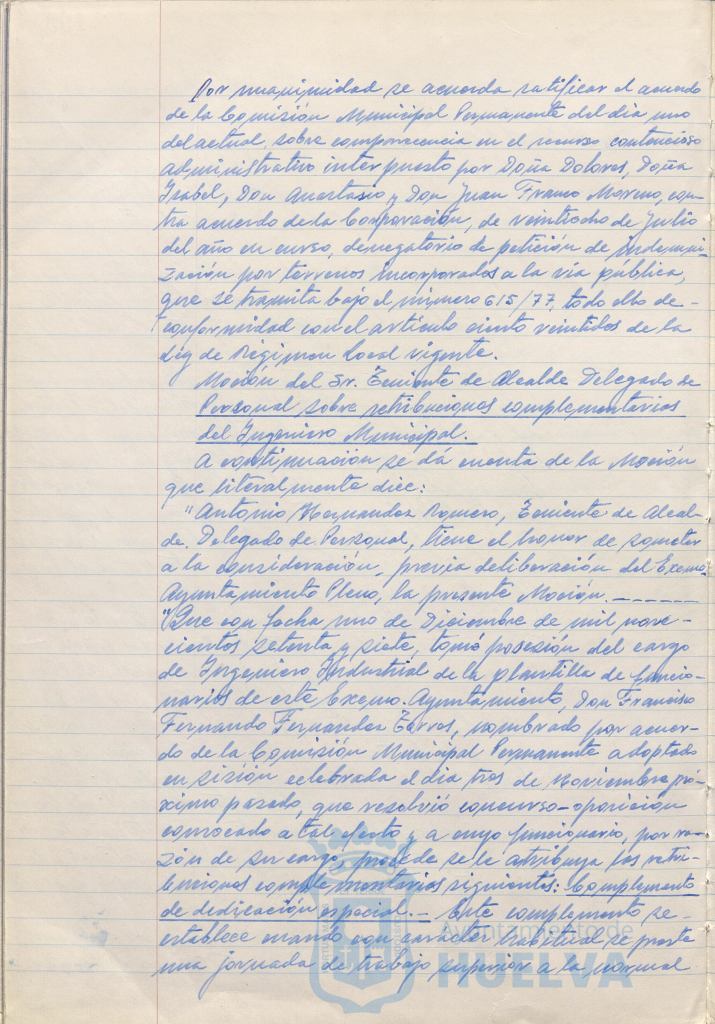 Por unanimidad se acuerda ratificar el acuerdo
de la Comisión Municipal Permanente del dia uno
del actual, sobre comparecencia en el recurso contencioso
administrativo interpuesto por Doña Dolores, Doña
Isabel, Don Anastasio y Don Juan Franco Moreno, con-
tra acuerdo de la Corporación, de veintiocho de Julio
del año en curso, denegatorio de petición de indemni-
zación por terrenos incorporados a la via pública,
que se tramita bajo el número 615/77, todo ello de-
conformidad con el artículo ciento veintidos de la
Ley de Régimen Local vigente.
Moción del Sr. Teniente de Alcalde Delegado de
Personal sobre retribuciones complementarias
del Ingeniero Municipal.
A continuación se dá cuenta de la Moción
que literalmente dice:
"Antonio Hernandez Romero, Teniente de Alcal-
de Delegado de Personal, tiene el honor de someter
a la consideración, previa deliberación del Excmo.
Ayuntamiento Pleno, la presente Moción.-------
"Que con fecha uno de Diciembre de mil nove-
cientos setenta y siete, tomó posesión del cargo
de Ingeniero Industrial de la plantilla de funcio-
narios de este Excmo. Ayuntamiento, Don Francisco
Fernando Fernandez Torres, nombrado por acuer-
do de la Comisión Municipal Permanente adoptado
en sesión celebrada el día tres de Noviembre pró-
ximo pasado, que resolvió concurso-oposición
convocado a tal efecto y a cuyo funcionario, por ra-
zón de su cargo, procede se le atribuya las retri-
buciones complementarias siguientes: Complemento
de dedicación especial.- Este complemento se-
establece cuando con carácter habitual se preste
una jornada de trabajo superior a la normal
Ayuntamiento de
HUELVA